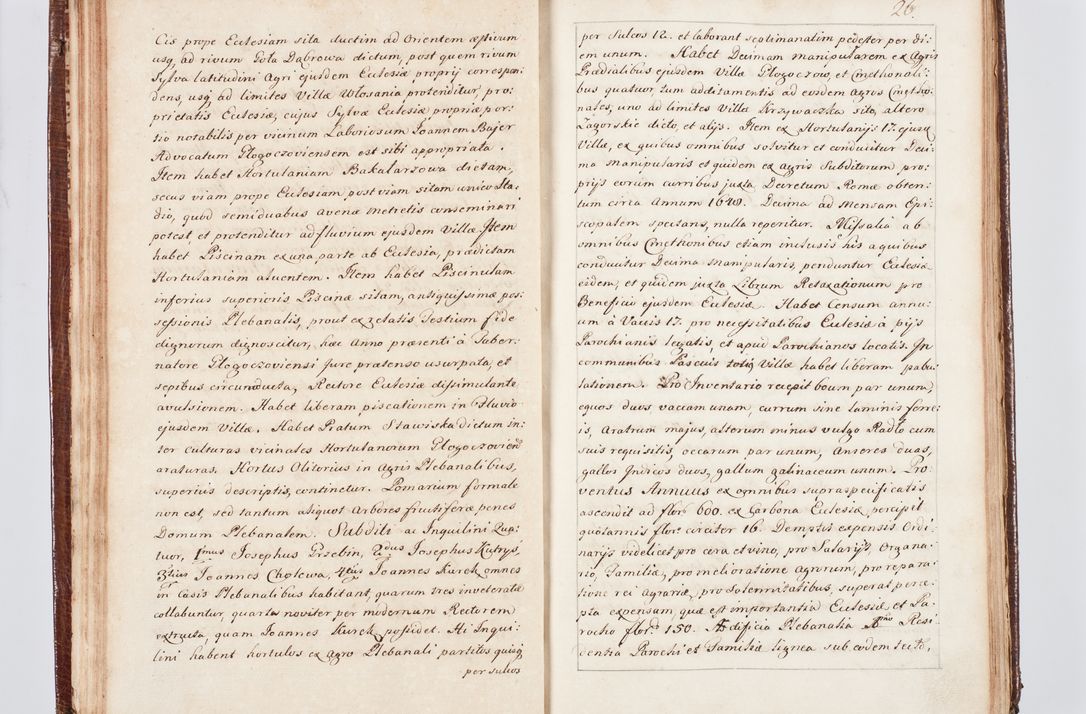 Cis prope Ecclesiam sita ductim ad Orientem æstivum
usq, ad rivum Gola Dąbrowa dictum, post quem rivum
Sylva latitudini Agri ejusdem Eclesiæ proprij correspon:
dens, usq ad limites Villæ Włosania protenditur, pro:
prietatis Eclesiæ, cujus Sylvæ Eclesiæ propriæ por:
tio notabilis per vicinum Laboriosum Joannem Bajer
Advocatum Głogoczoviensem est sibi appropriata.
Item habet Hortulaniam Bakalarzowa dictam,
secus viam prope Eclesiam post viam sitam unico Sta:
dio, quod semiduabus avenæ metretis conseminari
potest, et protenditur ad fluvium ejusdem Villæ. Item
habet Piscinam ex una parte ab Eclesia, prædictam
Hortulaniam aluentem. Item habet Piscinulam
inferius superioris Piscinæ sitam, antiquissimæ pos:
sessionis Plebanalis, prout ex relatis Testium fide
dignorum dignoscitur, hac Anno præsenti à Guber:
natore Głogoczoviensi Jure prætenso usurpata, et
sepibus circumducta, Rectore Eclesiæ dissimulante
avulsionem. Habet liberam piscationem in Fluvio
ejusdem Villæ. Habet Pratum Stawiska dictum in:
ter culturas vicinales Hortulanorum Głogoczovien
araturas. Hortus Olitorius in Agris Plebanalibus,
superius descriptis, continetur. Pomarium formale
non est, sed tantum aliquot Arbores fructiferæ penes
Domum Plebanalem. Subditi ac Inquilini Qua:
tuor, 1mus Josephus Przebin, 2dus Josephus Kutryś,
3tius Joannes Cholewa, 4tus Joannes Kurek omnes
in Casis Plebanalibus habitant, quarum tres inveteratæ
collabuntur, quarta noviter per modernum Rectorem
extructa, quam Joannes Kurek possidet. Hi Inqui:
lini habent hortulos ex agro Plebanali partitos quisq
per sulcos
26.
per sulcos 12. et laborant septimanatim pedester per di:
em unum. Habet Decimam manipularem ex Agris
Prædialibus ejusdem Villæ Głogoczow, et Cmethonali:
bus quatuor, tum additamentis ad eosdem agros Cmetho:
nales, uno ad limites Villæ Krzywaczka sito, altero
Zagorskie dicto, et alijs. Item ex Hortulanijs 17. ejusd
Villæ, ex quibus omnibus solvitur et conducitur Deci:
ma manipularis et quidem ex agris Subditorum pro:
prijs eorum curribus juxta Decretum Romæ obten:
tum circa Annum 1640. Decima ad mensam Epi:
scopalem spectans, nulla reperitur. Missalia ab
omnibus Cmethonibus etiam inclusis his a quibus
conducitur Decima manipularis, penduntur Eclesiæ
eidem, et quidem juxta Librum Retaxationum pro
Beneficio ejusdem Eclesiæ. Habet Censum annu:
um à Vaccis 17. pro necessitatibus Eclesiæ à pijs
Parochianis legatis, et apud Parochianos locatis. In
communibus Pascuis totiq Villæ habet liberam pabu
lationem. Pro Inventario recepit boum par unum,
equos duos vaccam unam, currum sine laminis ferre:
is, Aratrum majus, alterum minus vulgo Radło cum
suis requisitis, occarum par unum, Anseres duas,
gallos Indicos duos, gallum galinaceum unum. Pro:
ventus Annuus ex omnibus supraspecificatis
ascendit ad flor: 600. ex Carbona Eclesiæ, percipit
quotannis flor: circiter 16. Demptis expensis Ordi:
narijs videlicet pro cera et vino, pro Salarijs, Organa:
rio, Familiæ, pro melioratione agrorum, pro repara:
tione rei Agrariæ, pro Solemnitatibus, superat perce:
pta expensam, quæ est importantia Eclesiæ et Pa:
rocho flor: 150. Ædificia Plebanalia Resi:
dentia Parochi et Familiæ lignea sub eodem tecto,